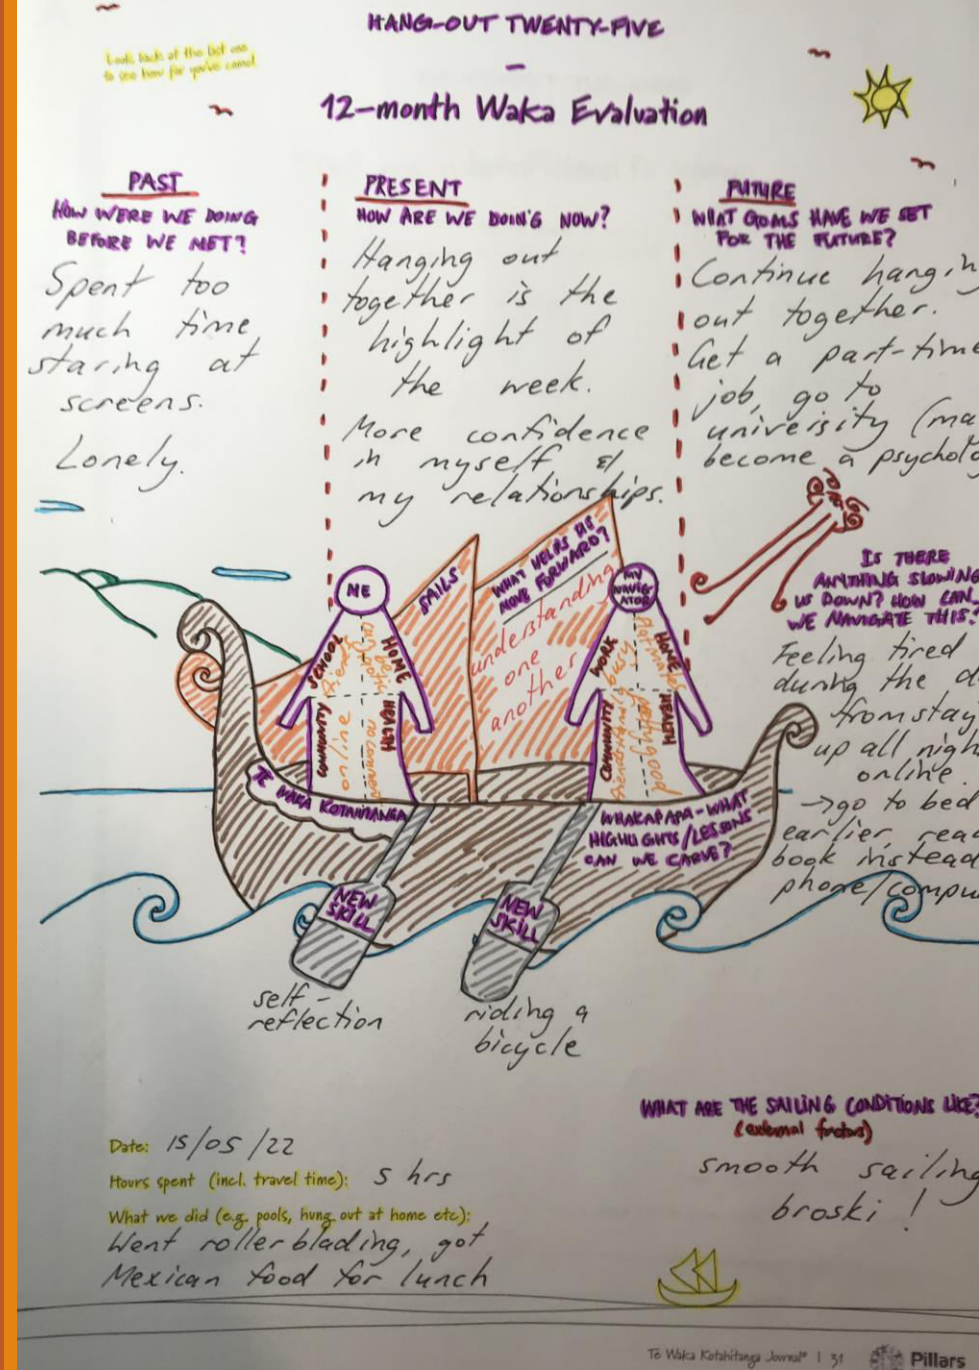 HANG-OUT TWENTY-FIVE
-
12-month Waka Evaluation
Look back at the last one
to see how far you've come!
PAST
HOW WERE WE DOING
BEFORE WE MET?
Spent too
much time
staring at
screens.
Lonely.
PRESENT
HOW ARE WE DOING NOW?
Hanging out
together is the
highlight of
the week.
More confidence
in myself &
my relationships.
FUTURE
WHAT GOALS HAVE WE SET
FOR THE FUTURE?
Continue hangin
out together.
Get a part-time
job, go to
university (ma
become a psycholo
IS THERE
ANYTHING SLOWING
US DOWN? HOW CAN
WE NAVIGATE THIS?
Feeling tired
during the d
from stay
up all nigh
online.
→go to bed
earlier, rea
book instead
phone/compu
ME
SCHOOL
friends
HOME
COMMUNITY
online
HEALTH
no comment
SAILS
WHAT HELPS US
MOVE FORWARD?
understanding
one
another
MY
NAVIG-
ATOR
WORK
busy
HOME
COMMUNITY
HEALTH
TE WAKA KOTAHITANGA
WHAKAPAPA-WHAT
HIGHLIGHTS/LESSONS
CAN WE CARVE?
NEW
SKILL
self-
reflection
NEW
SKILL
riding a
bicycle
WHAT ARE THE SAILING CONDITIONS LIKE?
(external factors)
smooth sailing
broski!
Date: 15/05/22
Hours spent (incl. travel time): 5 hrs
What we did (e.g. pools, hung out at home etc):
Went rollerblading, got
Mexican food for lunch
Te Waka Kotahitanga Journal® | 31
Pillars